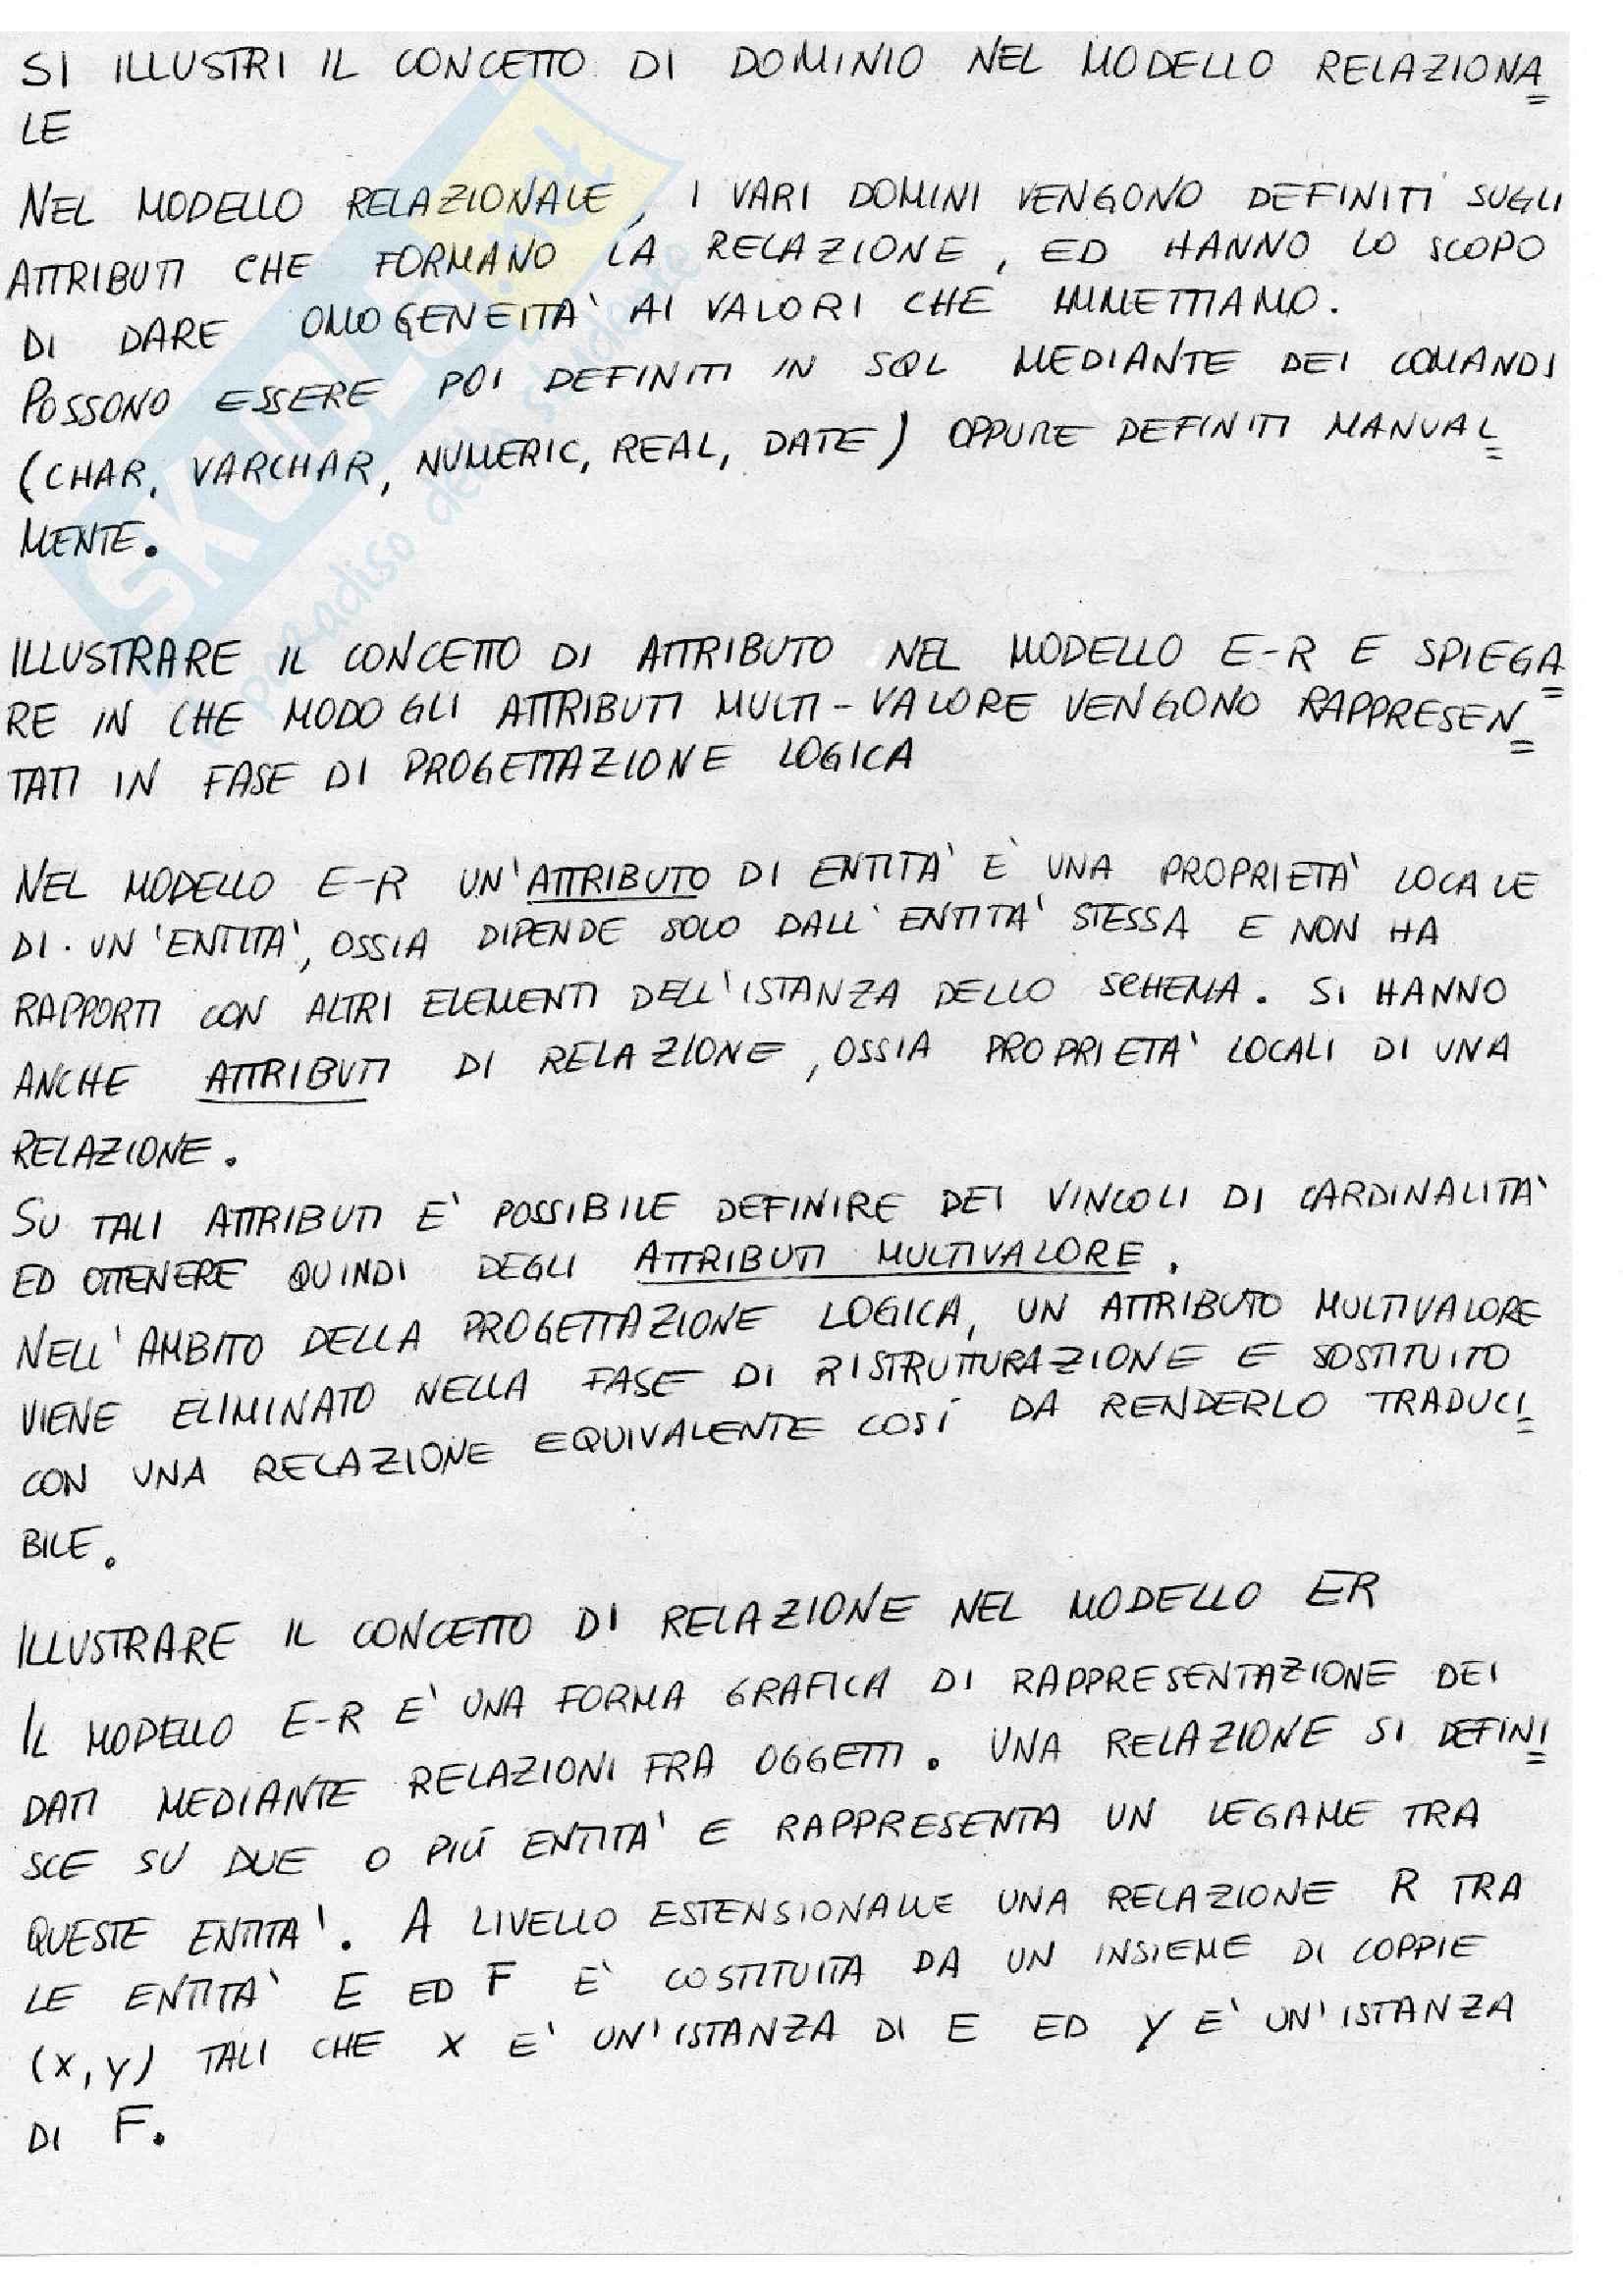 SI ILLUSTRI IL CONCETTO DI DOMINIO NEL MODELLO RELAZIONA
LE
NEL MODELLO RELAZIONALE, I VARI DOMINI VENGONO DEFINITI SUGLI
ATTRIBUTI CHE FORMANO LA RELAZIONE, ED HANNO LO SCOPO
DI DARE OMOGENEITA' AI VALORI CHE IMMETTIAMO.
POSSONO ESSERE POI DEFINITI IN SQL MEDIANTE DEI COMANDI
(CHAR, VARCHAR, NUMERIC, REAL, DATE) OPPURE DEFINITI MANUAL
MENTE.
SKUOLA.net
paradiso dello studente
ILLUSTRARE IL CONCETTO DI ATTRIBUTO NEL MODELLO E-R E SPIEGA
RE IN CHE MODO GLI ATTRIBUTI MULTI-VALORE VENGONO RAPPRESEN
TATI IN FASE DI PROGETTAZIONE LOGICA
NEL MODELLO E-R UN'ATTRIBUTO DI ENTITA' E' UNA PROPRIETA' LOCALE
DI UN'ENTITA', OSSIA DIPENDE SOLO DALL'ENTITA' STESSA E NON HA
RAPPORTI CON ALTRI ELEMENTI DELL'ISTANZA DELLO SCHEMA. SI HANNO
ANCHE ATTRIBUTI DI RELAZIONE, OSSIA PROPRIETA' LOCALI DI UNA
RELAZIONE.
SU TALI ATTRIBUTI E' POSSIBILE DEFINIRE DEI VINCOLI DI CARDINALITA'
ED OTTENERE QUINDI DEGLI ATTRIBUTI MULTIVALORE.
NELL'AMBITO DELLA PROGETTAZIONE LOGICA, UN ATTRIBUTO MULTIVALORE
VIENE ELIMINATO NELLA FASE DI RISTRUTTURAZIONE E SOSTITUITO
CON UNA RELAZIONE EQUIVALENTE COSÍ DA RENDERLO TRADUCI
BILE.
ILLUSTRARE IL CONCETTO DI RELAZIONE NEL MODELLO ER
IL MODELLO E-R E' UNA FORMA GRAFICA DI RAPPRESENTAZIONE DEI
DATI MEDIANTE RELAZIONI FRA OGGETTI. UNA RELAZIONE SI DEFINI
SCE SU DUE O PIÚ ENTITA' E RAPPRESENTA UN LEGAME TRA
QUESTE ENTITA'. A LIVELLO ESTENSIONALLE UNA RELAZIONE R TRA
LE ENTITA' E ED F E' COSTITUITA DA UN INSIEME DI COPPIE
(X,Y) TALI CHE X E' UN'ISTANZA DI E ED Y E' UN'ISTANZA
DI F.